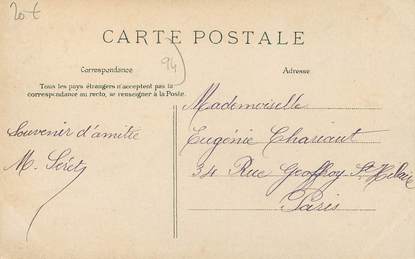 20 €
CARTE POSTALE
94
Correspondance
Tous les pays étrangers n'acceptent pas la
correspondance au recto, se renseigner à la Poste.
Adresse
Souvenir d'amitié
M. Séret
Mademoiselle
Eugénie Chariaut
34 Rue Geoffroy St Hilaire
Paris